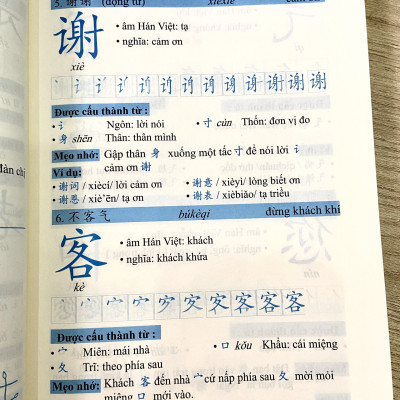 5. 谢谢 (động từ) xièxie cảm ơn
谢
• âm Hán Việt: tạ
• nghĩa: cảm ơn
xiè
Được cấu thành từ :
• 讠 Ngôn: lời nói • 寸 cùn Thốn: đơn vị đo
• 身 shēn Thân: thân mình
Mẹo nhớ: Gập thân 身 xuống một tấc 寸 để nói lời 讠
cảm ơn 谢
Ví dụ:
• 谢词 / xiècí/ lời cảm ơn • 谢意 / xièyì/ lòng biết ơn
• 谢恩 / xiè'ēn/ tạ ơn • 谢表 / xièbiǎo/ tạ triều
6. 不客气 búkèqi đừng khách khí
客
• âm Hán Việt: khách
• nghĩa: khách khứa
kè
Được cấu thành từ :
• 宀 Miên: mái nhà • 口 kǒu Khẩu: cái miệng
• 夂 Trĩ: theo phía sau
Mẹo nhớ: Khách 客 đến nhà 宀 cứ nấp phía sau 夂 mời mỏi
miệng 口 mới vào.
đàn chị
nín